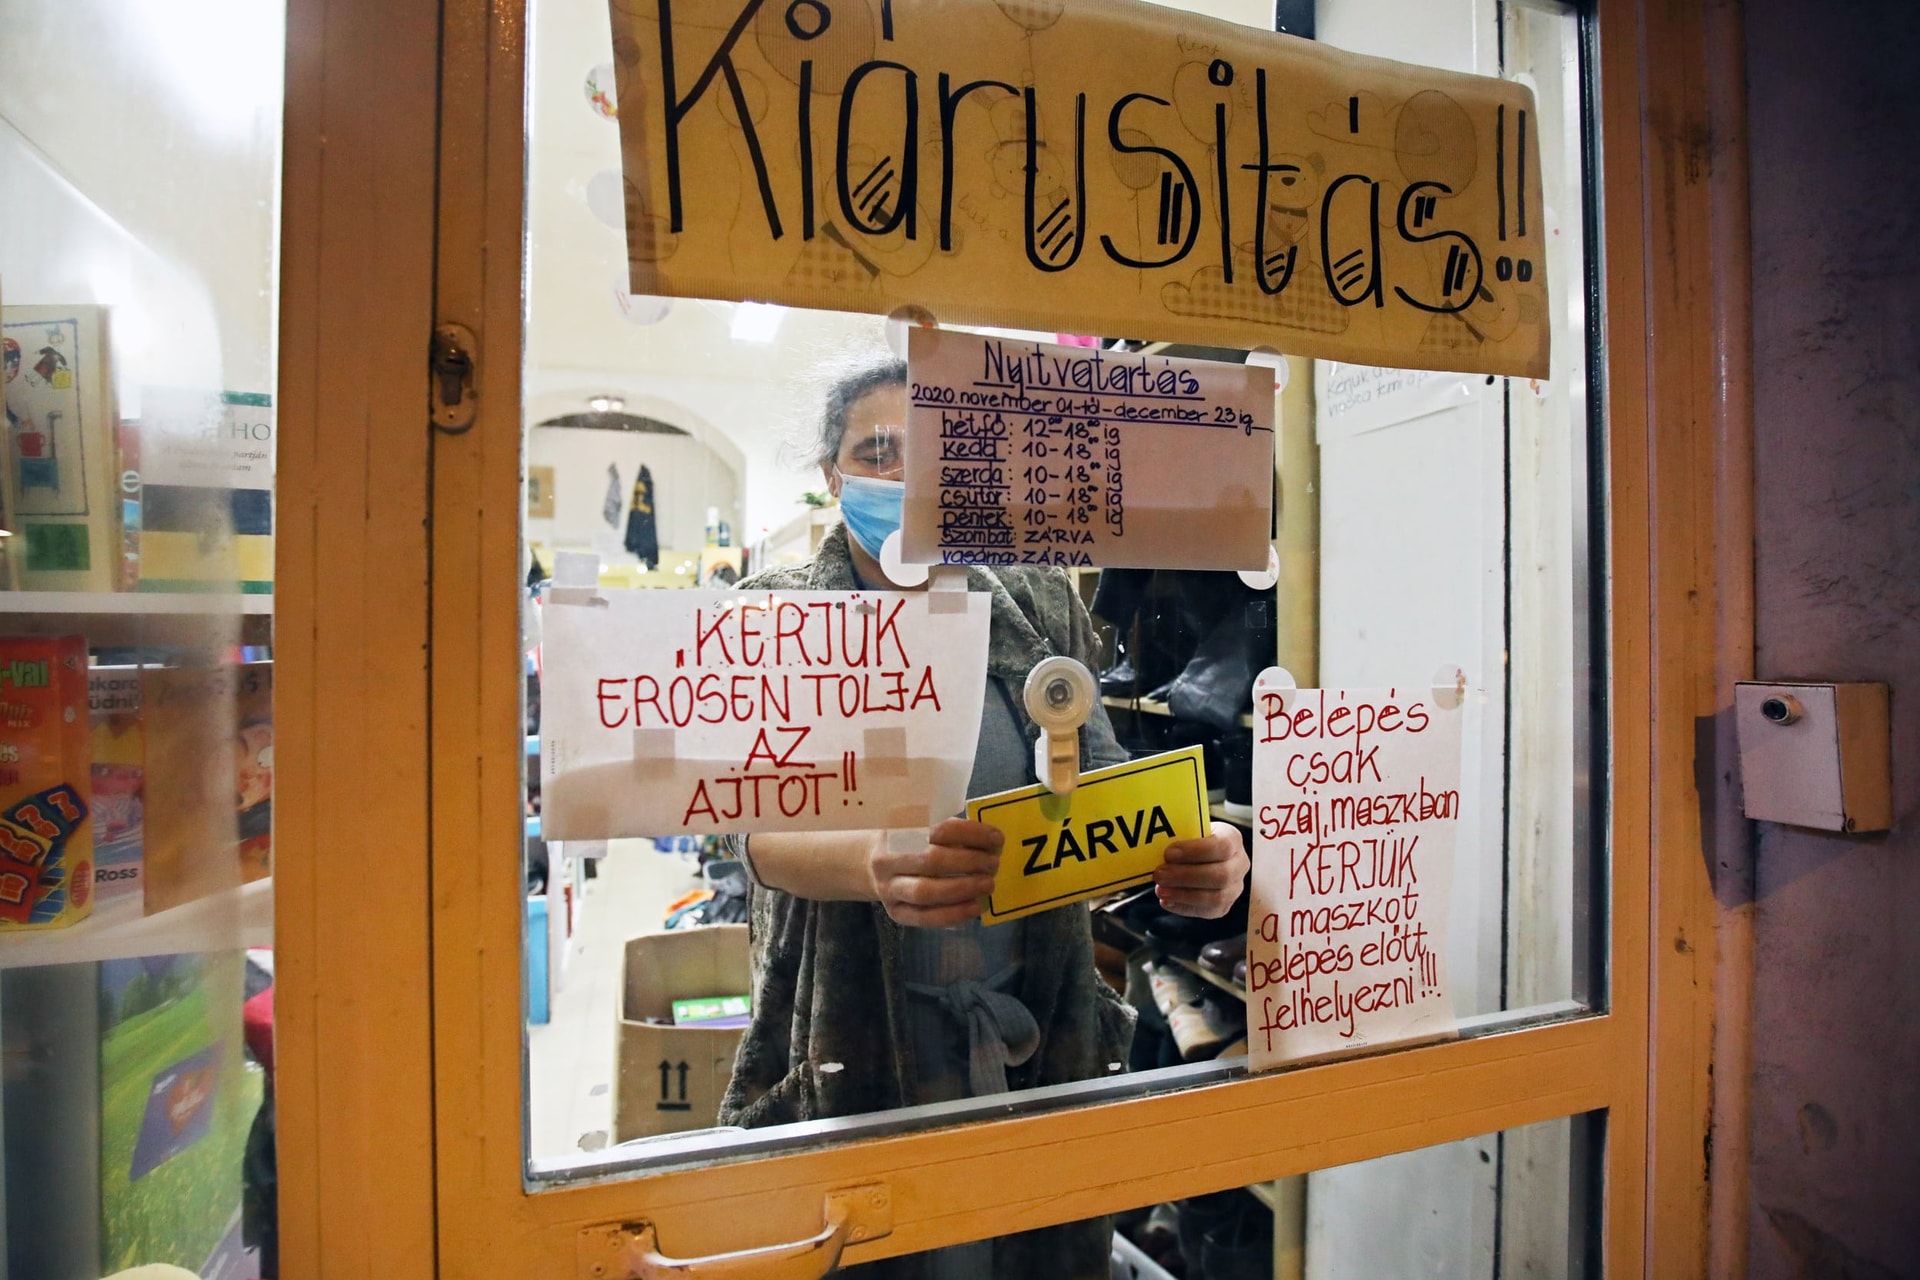 Kiárusítás!!
Nyitvatartás
2020. november 01-től - december 23 ig
hétfő: 12⁰⁰-18⁰⁰ ig
kedd: 10-18⁰⁰ ig
szerda: 10-18⁰⁰ ig
csütör: 10-18⁰⁰ ig
péntek: 10-18⁰⁰ ig
szombat: ZÁRVA
vasárnap: ZÁRVA
KÉRJÜK
ERŐSEN TOLJA
AZ
AJTÓT!!
ZÁRVA
Belépés
csak
száj, maszkban
KÉRJÜK
a maszkot
belépés előtt
felhelyezni!!!
Ross